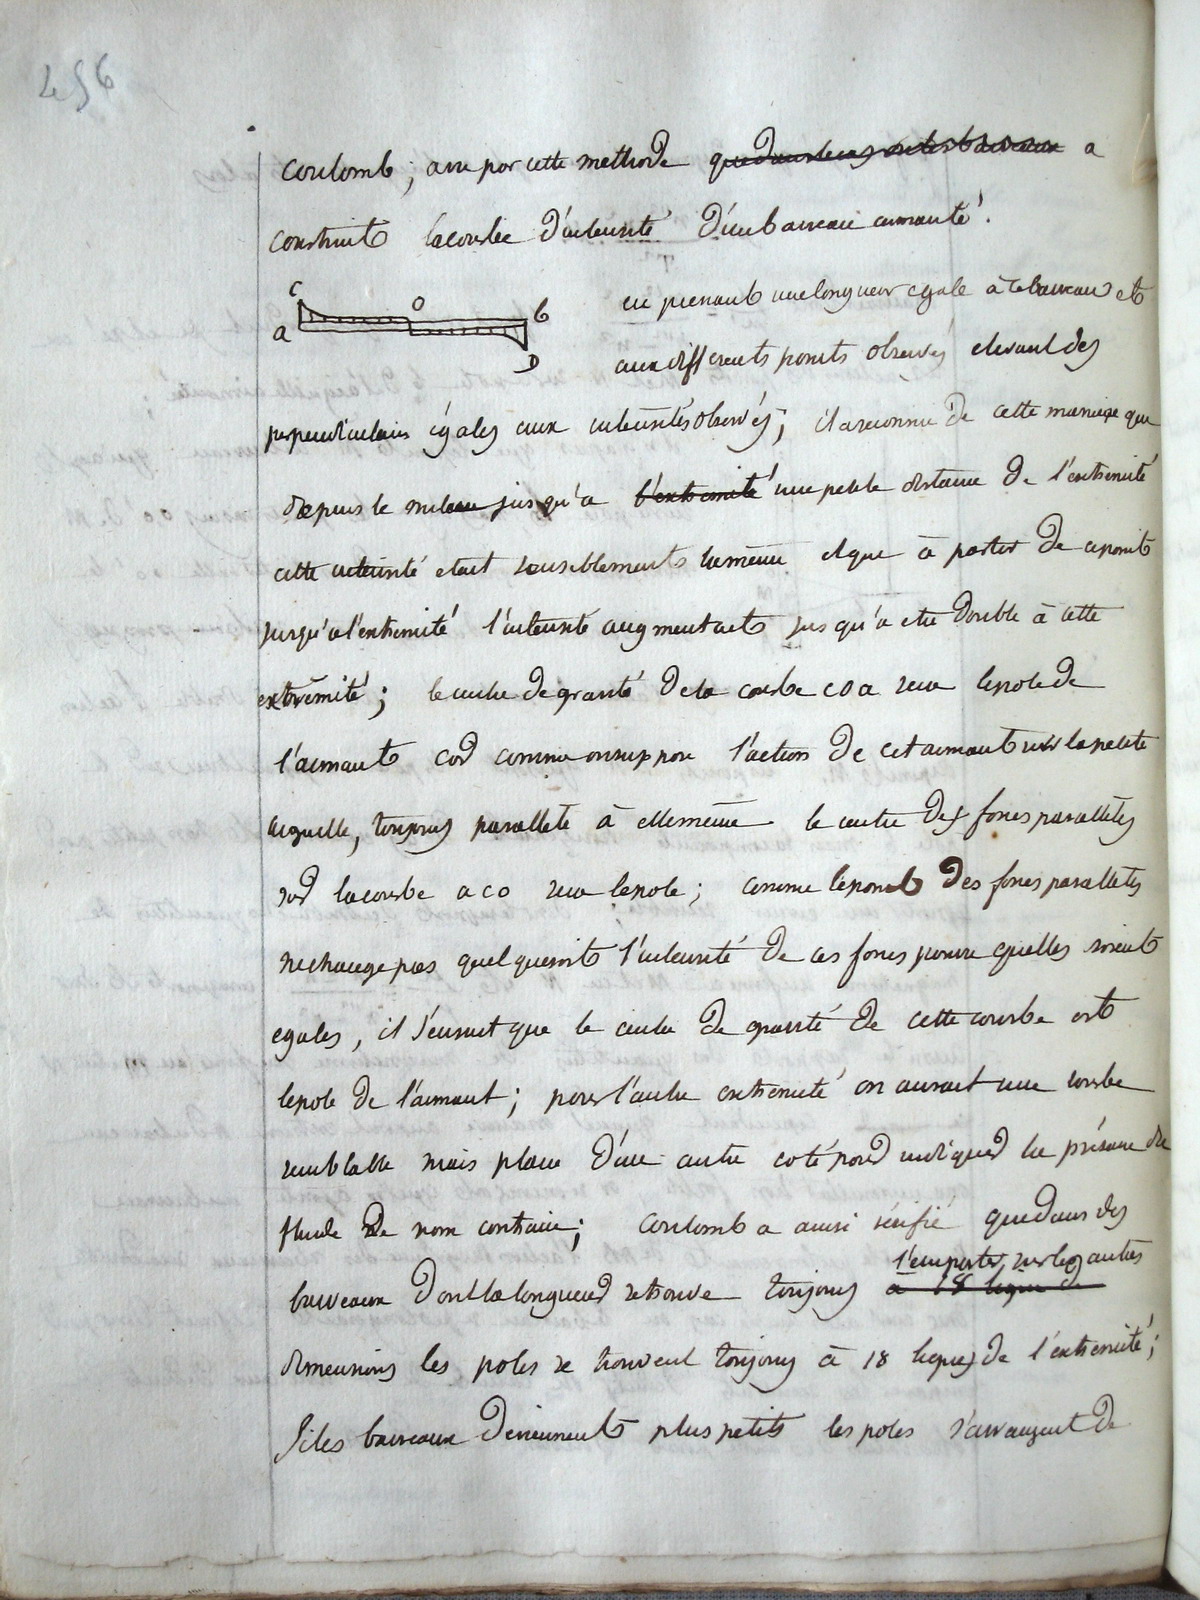 456
Coulomb; avec par cette méthode que dans le cas où les barreaux a
construit la courbe d'intensité d'un barreau aimanté.
C O B
a D
en prenant une longueur egale à ce barreau et
aux differents points observés elevant des
perpendiculaires égales aux intensités observés; il a reconnu de cette maniere que
depuis le milieu jusqu'a l'extremité une petite distance de l'extremité
cette intensité etait sensiblement la même et que à partir de ce point
jusqu'a l'extremité l'intensité augmentait jusqu'a etre double à cette
extrémité; le centre de gravité de la courbe c o a sera le pole de
l'aimant car comme on suppose l'action de cet aimant sur la petite
aiguille, toujours parallele à elle même le centre des forces paralleles
sur la courbe a c o sera le pole; comme le point des forces paralleles
ne change pas quel que soit l'intensité de ces forces pourvu qu'elles soient
egales, il s'ensuit que le centre de gravité de cette courbe est
le pole de l'aimant; pour l'autre extremité on aurait une courbe
semblable mais placée d'un autre coté pour indiquer la présence du
fluide de nom contraire; Coulomb a aussi vérifié que dans des
l'emporter sur les autres
barreaux dont la longueur se trouve toujours a 18 lignes de
dimensions les poles se trouvent toujours à 18 lignes de l'extremité;
Si les barreaux deviennent plus petits les poles s'arrangent de